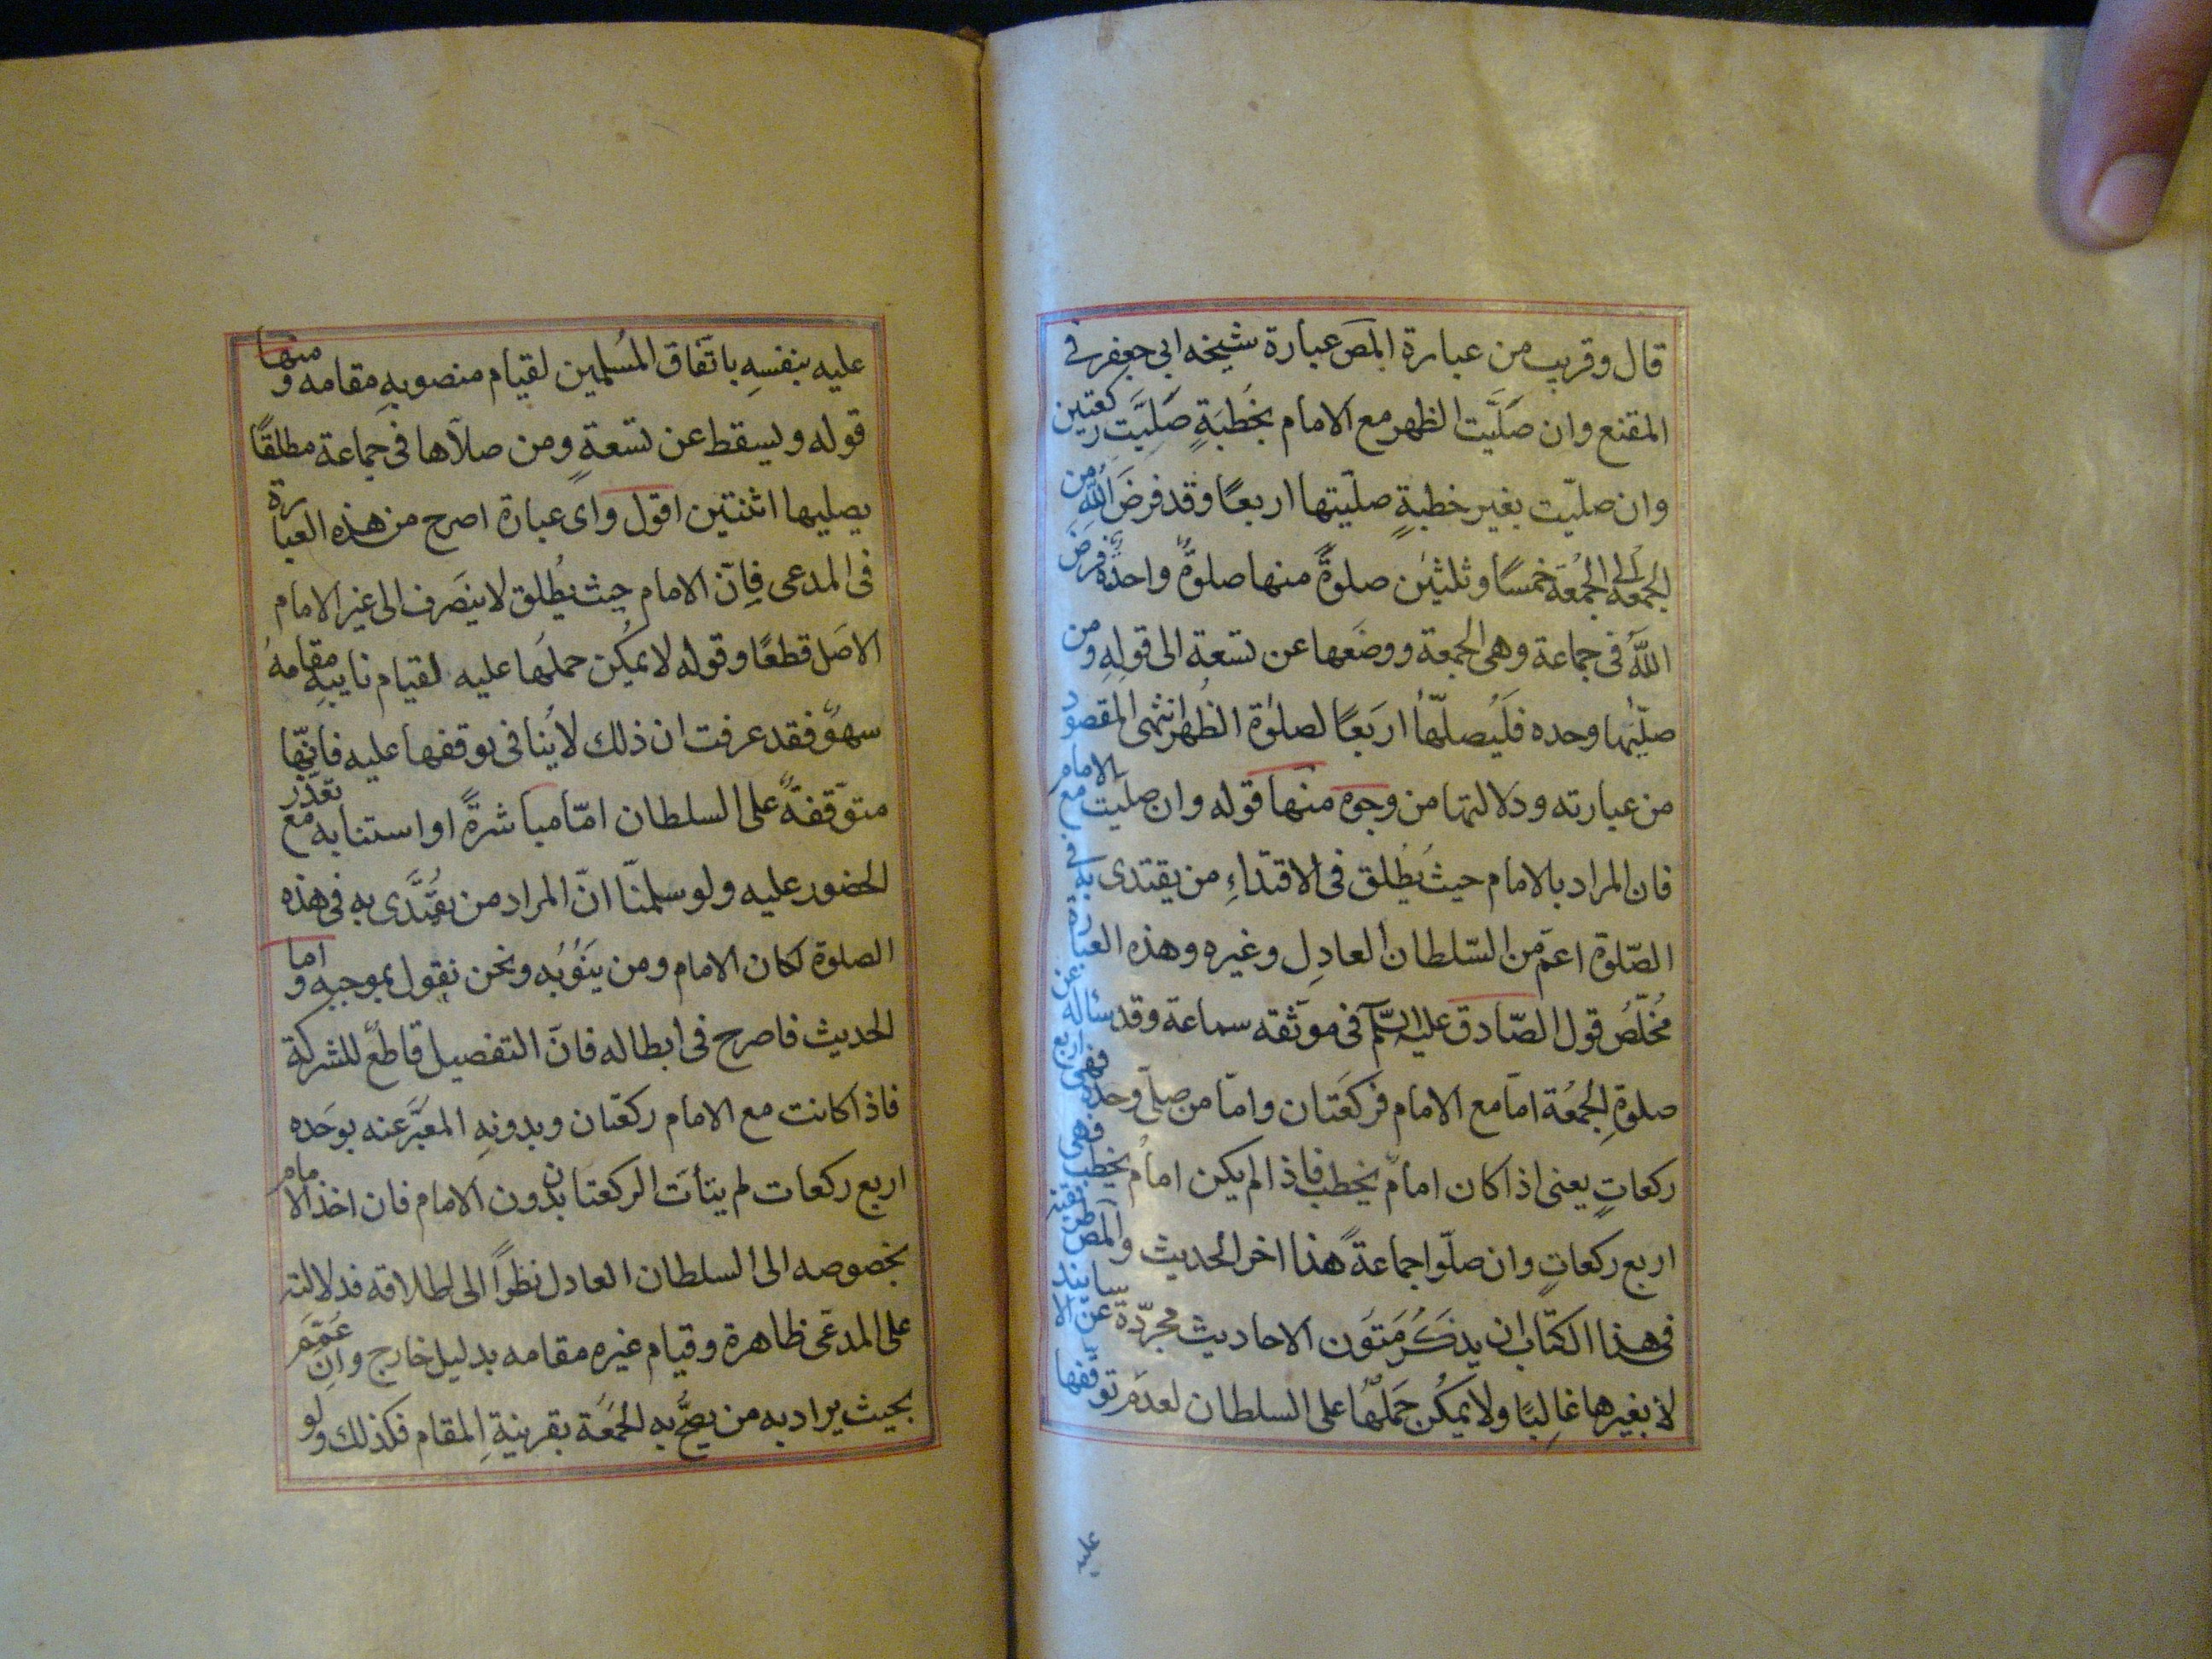 قال وقريب من عبارة المص عبارة شيخه ابي جعفر في
المقنع وان صَلَّيَت الظهر مع الامام بخُطبَةٍ صَلَّيَت ركعتين
وان صليّت بغير خطبةٍ صليّتها اربعًا وقد فرضَ اللّهِ من
الجمعة الى الجُمُعَة خمسًا وثلثين صلوةً منها صلوةٌ واحدةٌ فرض
اللّه في جماعة وهى الجمعة ووضَعها عن تسعةٍ الى قولِهِ ومن
صلّيها وحده فَليُصلّها اربَعًا لصلوة الظُهر انتهى المقصود
من عبارته ودلالتها من وجوه منها قوله وان صليت مع الامام
فان المراد بالامام حيثُ يُطلق في الاقتداءِ من يقتدى به في
الصّلوة اعم من السّلطان العادِل وغيره وهذه العبارة
مُخلّصُ قول الصّادق عليه السّلم في موثقه سماعة وقد سئاله عن
صلوةِ الجُمُعَة امّا مع الامام فركعَتان وامّا من صلّى وحده فهى اربع
ركعاتٍ يعنى اذا كان امامٌ يخطب فاذا لم يكن امامٌ يخطب فهى
اربع ركعاتٍ وان صلّوا جماعةً هذا اخر الحديث والمص
فى هذا الكتاب ان يذكُر مَتوُن الاحاديث مجردّة عن الا سانيد
لا بغيرها غالِبًا ولا يمكُن حَملُها على السلطان لعدَم توقفها
عليه
عليه بنفسِهِ باتّفاق المُسلمين لقيام منصوبِهِ مقامه ومنها
قوله ويسقط عن تسْعةٍ ومن صلاّها في جماعة مطلقًا
يصليها اثنتين اقول واى عبارة اصرح من هذه العبارة
فى المدعى فاِنّ الامام حيث يُطلق لا ينصَرف الى غير الامام
الاصَل قطعًا وقوله لا يمكُن حملُها عليه لقيام نايبِهِ مقامهُ
سهوٌ فقد عرفت ان ذلك لا يُنافى توقفها عليه فانّها
متوّقفةٌ على السلطان امّا مباشرةً او استنابه مع تعذّر
الحضور عليه ولو سلمنّا انّ المراد من يُقتَدى به في هذه
الصلوة لكان الامام ومن يَنَوُبُه ونحن نقول بموجبه واما
الحديث فاصرح في ابطاله فانَ التفصيل قاطعٌ للشركة
فاذا كانت مع الامام ركعتان وبدونِهِ المعبَّر عنه بوَحَده
اربع ركعات لم يتأت الركعتان بدون الامام فان اخذ الامام
بخصوصه الى السلطان العادل نظراً الى اطلاقه فدلالته
على المدعى ظاهرة وقيام غيره مقامه بدليل خارج وان عُمّمَ
بحيث يراد به من يصحُّ به الجُمعَة بقرينةِ المقام فكذلك ولو